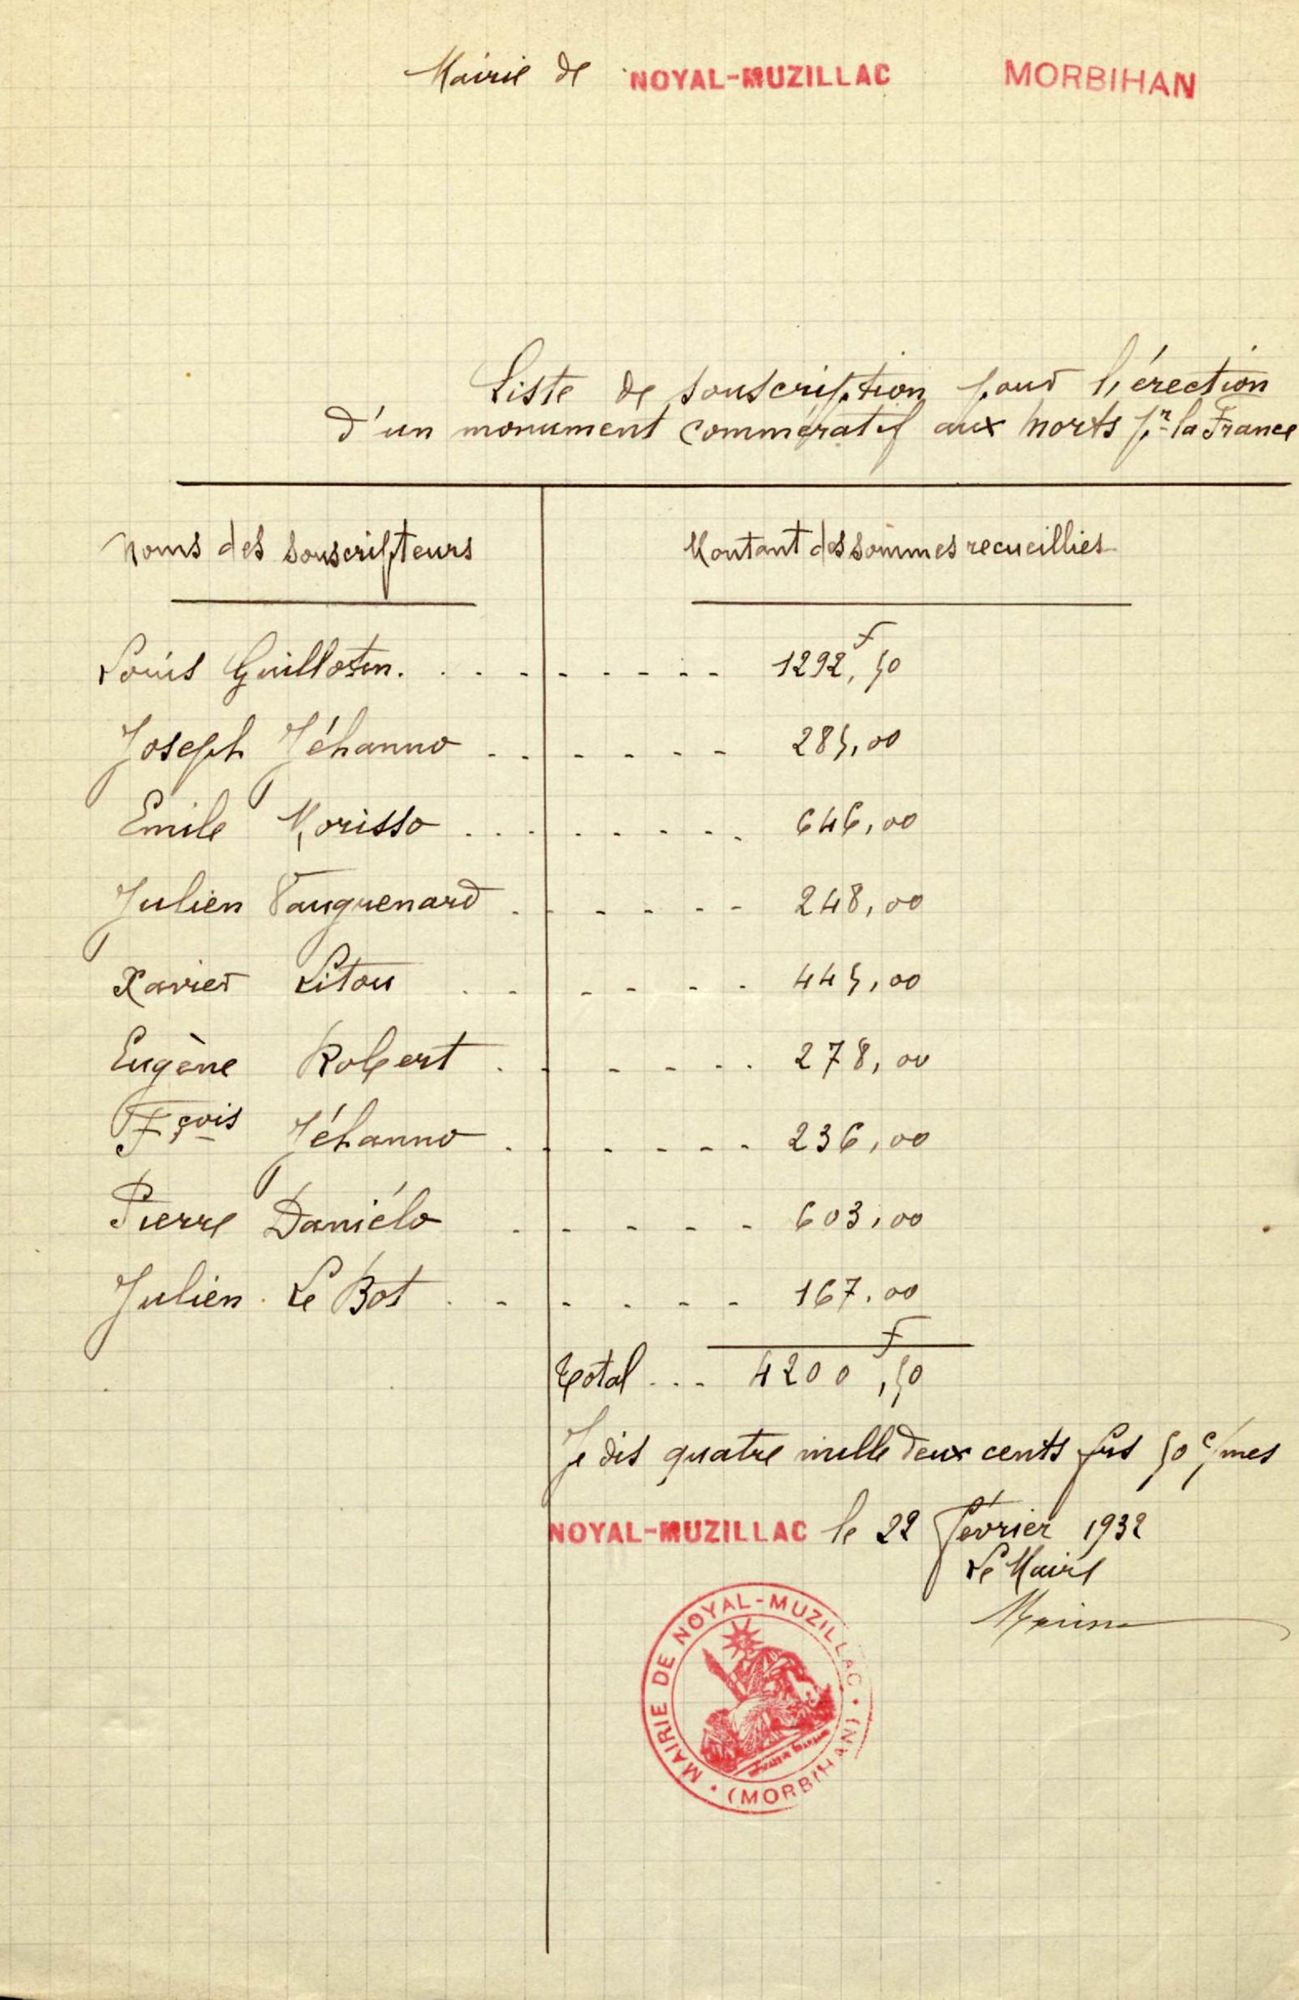 Mairie de NOYAL-MUZILLAC MORBIHAN
Liste de souscription pour l'érection
d'un monument commératif aux Morts pr la France
Noms des souscripteurs Montant des sommes recueillies
Louis Guillotin. . . . . . . . . 1292F,50
Joseph Jéhanno . . . . . . . 285,00
Emile Morisso . . . . . . . . 646,00
Julien Vauguenard . . . . . . 248,00
Xavier Litou . . . . . . . 445,00
Eugène Robert . . . . . . . 278,00
Fçois Jéhanno . . . . . . 236,00
Pierre Daniélo . . . . . . 603,00
Julien Le Bot . . . . . . . 167,00
Total ... 4200F,50
Je dis quatre mille deux cents frs 50 c/mes
NOYAL-MUZILLAC le 22 Février 1932
Le Maire
MAIRIE DE NOYAL-MUZILLAC • (MORBIHAN) •